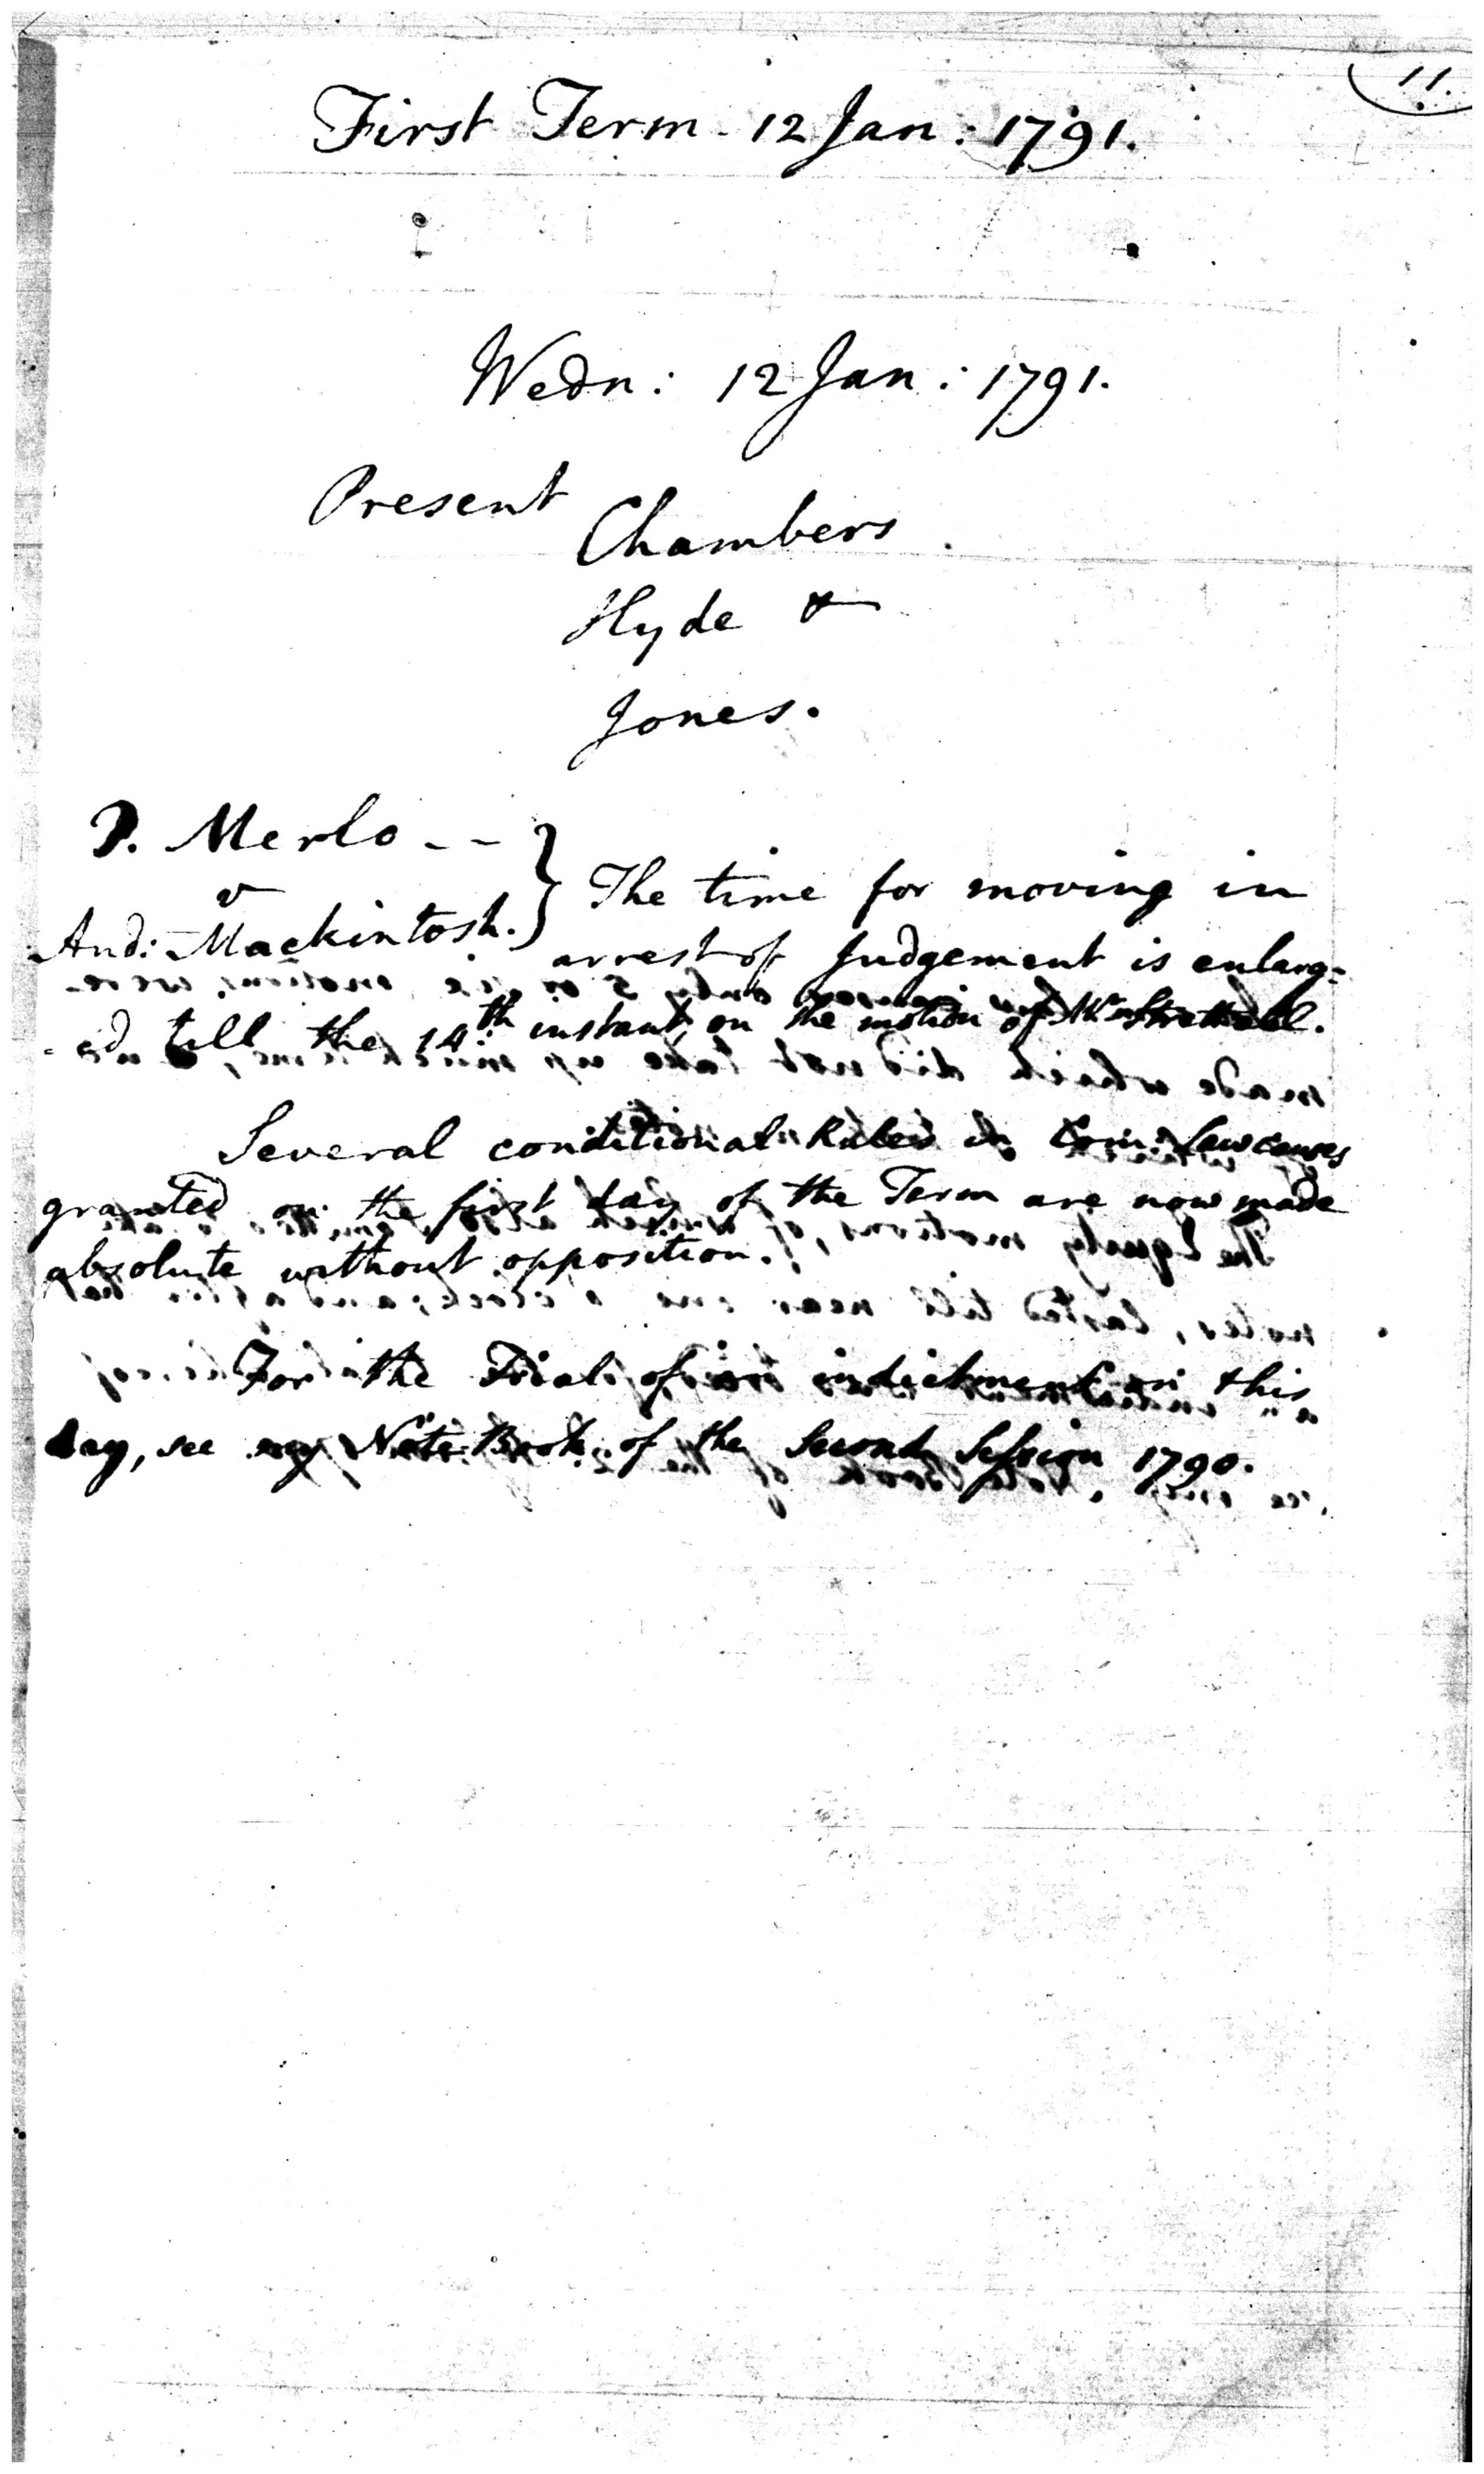 11.
First Term - 12 Jan: 1791.
Wedn: 12 Jan: 1791.
Present
Chambers
Hyde &
Jones.
P. Merlo - -
v
And: Mackintosh. } The time for moving in
arrest of Judgement is enlarg-
-ed till the 14th instant, on the motion of Mr Strettell.
Several conditional Rules in Com: Law causes
granted on the first day of the Term are now made
absolute without opposition.
For the Trial of an indictment on this
day, see my Note Book of the Second Session 1790.